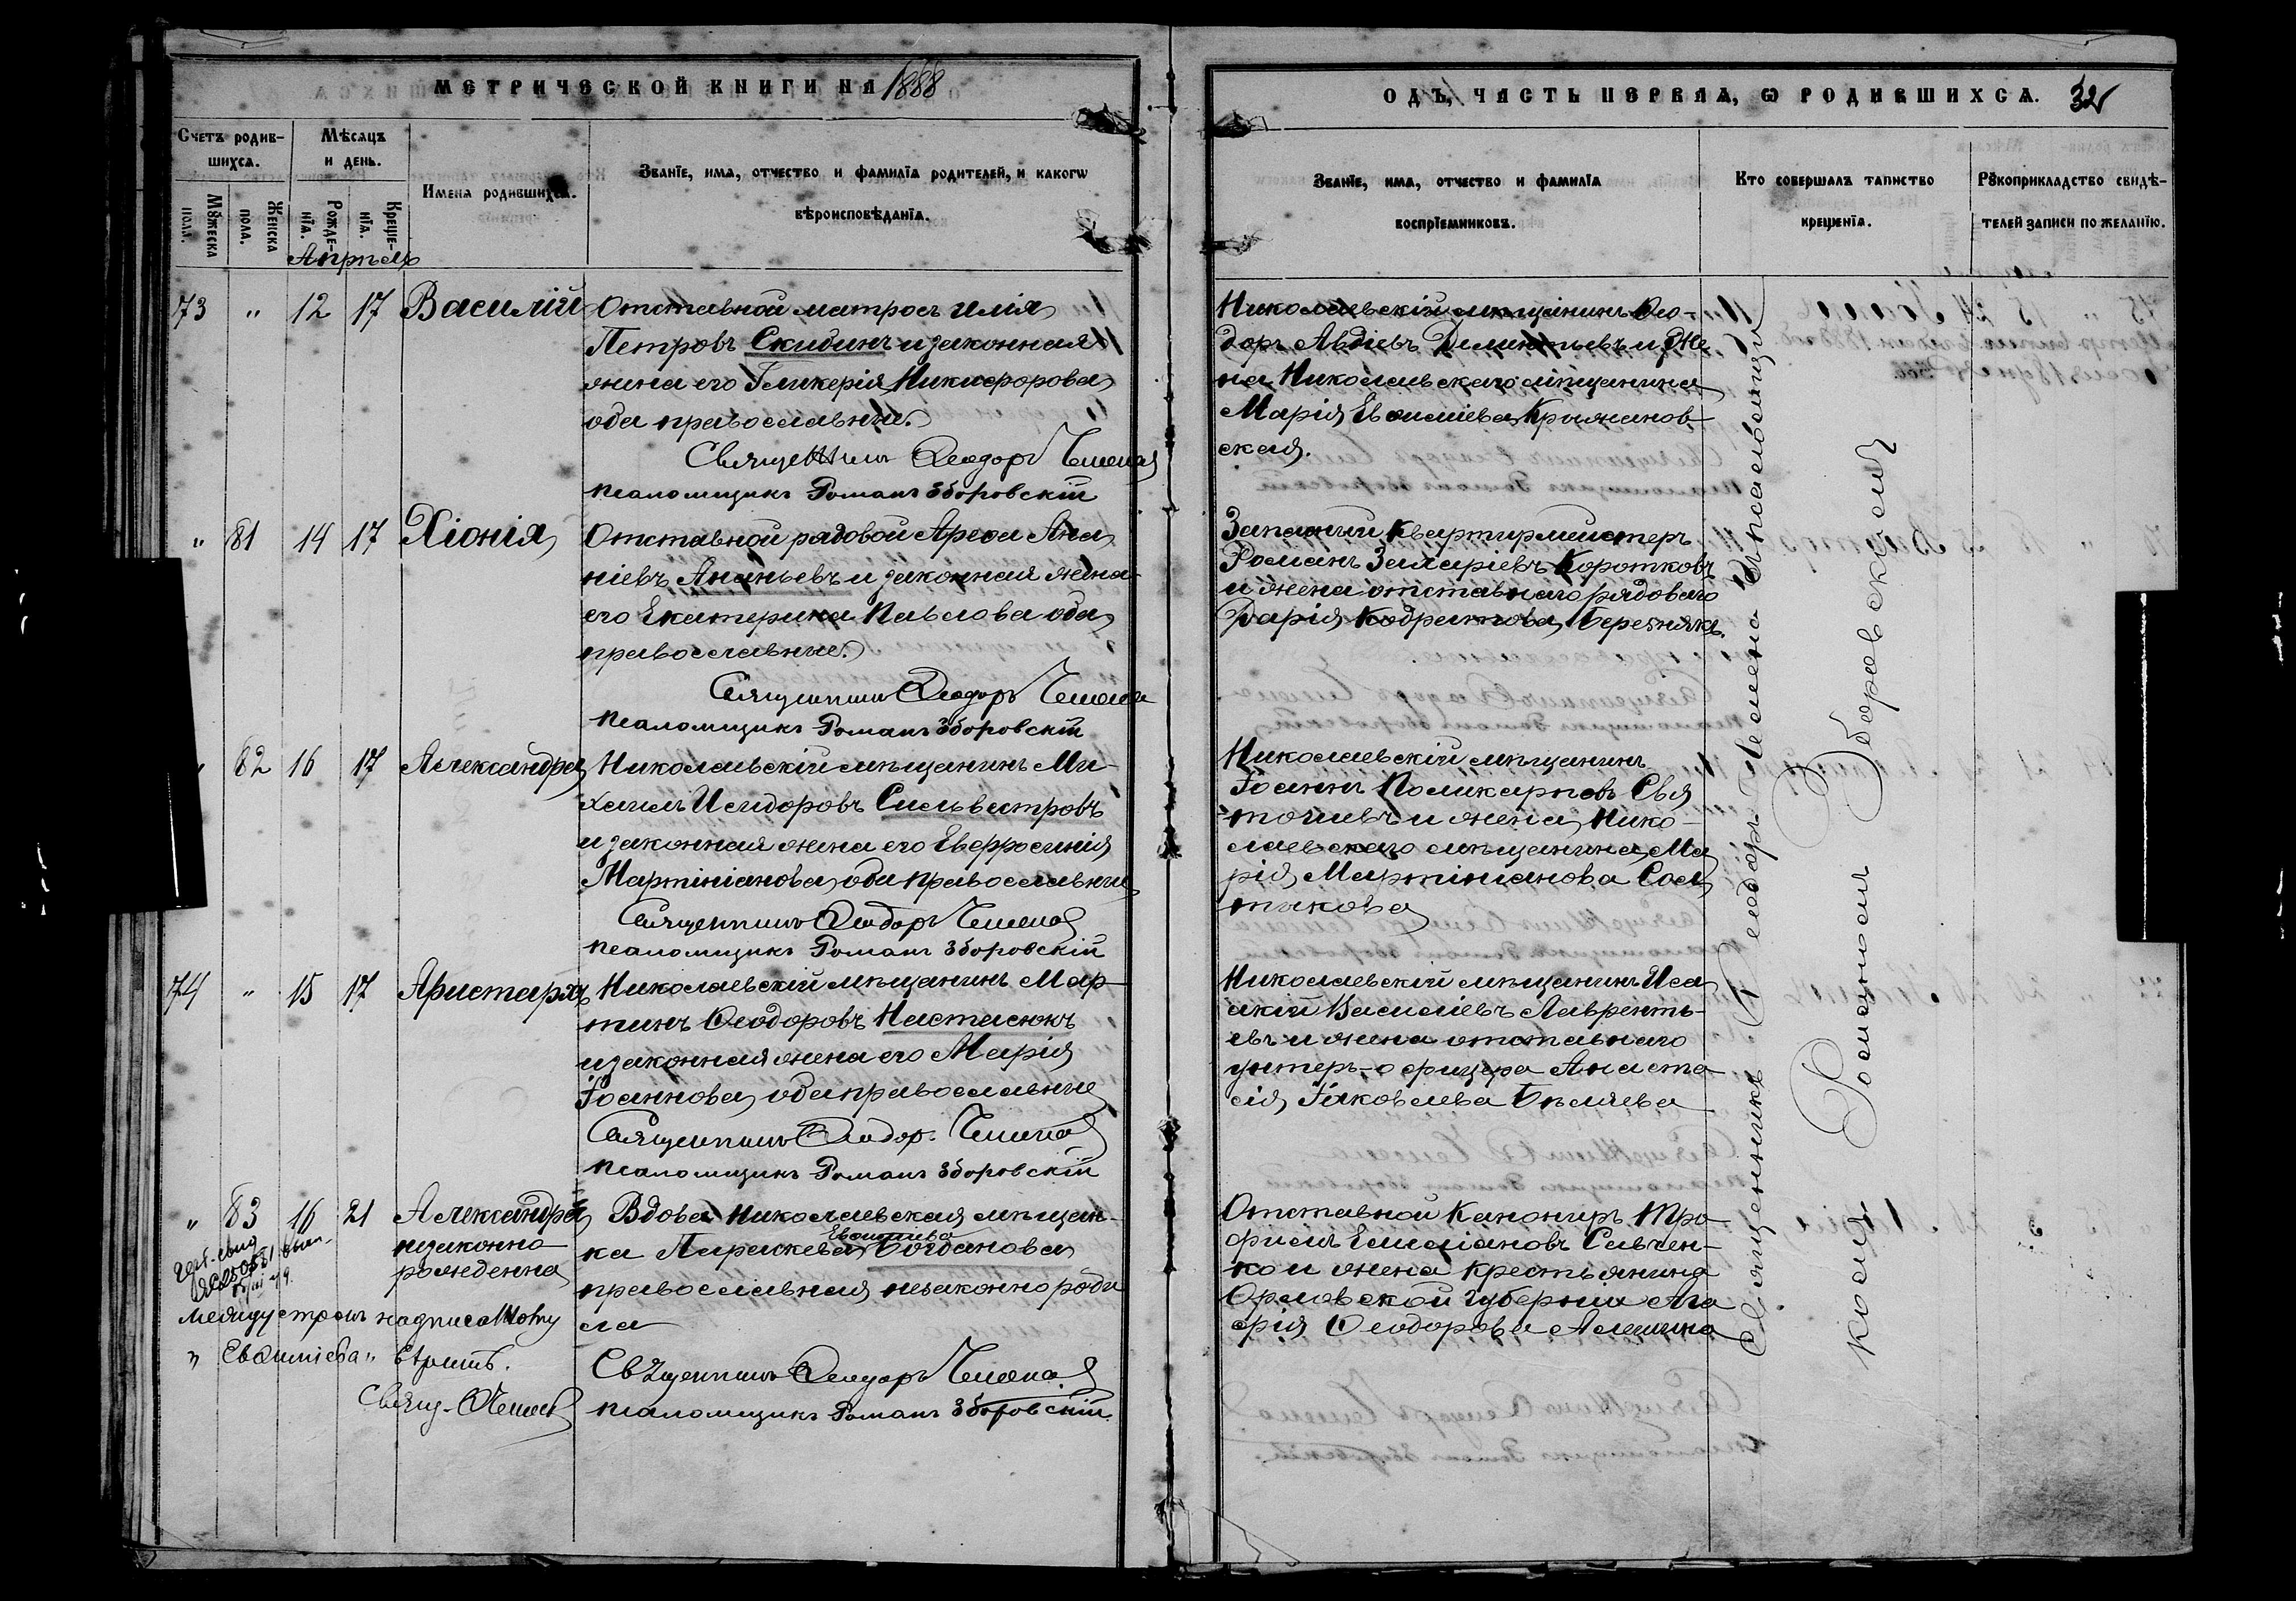 МЕТРИЧЕСКОЙ КНИГИ НА 1888
Счетъ родив-
шихся.
Мѣсяцъ
и день.
Мꙋжеска
пола.
Женска
пола.
Рожде-
нїя.
Креще-
нїя.
Имена родившихся.
Званїе, имя, отчество и фамилїя родителей, и какогѡ
вѣроисповѣданїя.
Апрѣль
73 " 12 17 Василій
Отставной матросъ Илія
Петровъ Скидинъ и законная
жена его Гликерія Никифорова
оба православные.
Священникъ Ѳеодоръ Чемена
псаломщикъ Романъ Зборовскій
" 81 14 17 Хіонія
Отставной рядовой Арефа Ана
ніевъ Ананьевъ и законная жена
его Екатерина Павлова оба
православные.
Священникъ Ѳеодоръ Чемена
псаломщикъ Романъ Зборовскій
" 82 16 17 Александра
Николаевскій мѣщанинъ Ми-
хаилъ Исидоровъ Сильвестровъ
и законная жена его Евфросинія
Мартиніанова, оба православные
Священникъ Ѳеодоръ Чемена
псаломщикъ Романъ Зборовскій
74 " 15 17 Аристархъ
Николаевскій мѣщанинъ Мар-
тинъ Ѳеодоровъ Настасюкъ
и законная жена его Марія
Іоаннова, оба православные
Священникъ Ѳеодоръ Чемена
псаломщикъ Романъ Зборовскій
" 83 16 21 Александра
незаконно
рожденна
Вдова Николаевская мѣщан-
Евѳиміева
ка Параскева Богданова
православная незаконно роди
ла
между строкъ надписанному
" Евѳиміева" вѣрить.
Свящ. Ѳ Чемена
Священникъ Ѳеодоръ Чемена
псаломщикъ Романъ Зборовскій.
ОДЪ, ЧАСТЬ ПЕРВАЯ, Ѡ РОДИВШИХСЯ. 32
Званїе, имя, отчество и фамилїя
воспрїемниковъ.
Кто совершалъ таинство
крещенїя.
Рꙋкоприкладство свидѣ-
телей записи по желанїю.
Николаевскій мѣщанинъ Ѳео-
доръ Авдіевъ Дементьевъ и же
на Николаевскаго мѣщанина
Марія Евѳиміева Крыжанов-
ская.
Запасный квартирмейстеръ
Романъ Захаріевъ Коротковъ
и жена отставнаго рядоваго
Дарія Кодратова Березняка.
Николаевскій мѣщанинъ
Іоаннъ Поликарповъ Свя
и жена Нико-
лаевскаго мѣщанина Ма
рія Мартиніанова Сал
тыкова
Николаевскій мѣщанинъ Иса
акій Василіевъ Лавренть-
евъ и жена отставнаго
унтеръ-офицера Анаста
сія Іаковлева Бѣляева
Отставной канониръ Тро
фимъ Емиліановъ Савчен-
ко и жена крестьянина
Орловской губерніи Ага
фія Ѳеодорова Алешина
Священникъ Ѳеодоръ Чемена съ псаломщи
комъ Романомъ Зборовскимъ